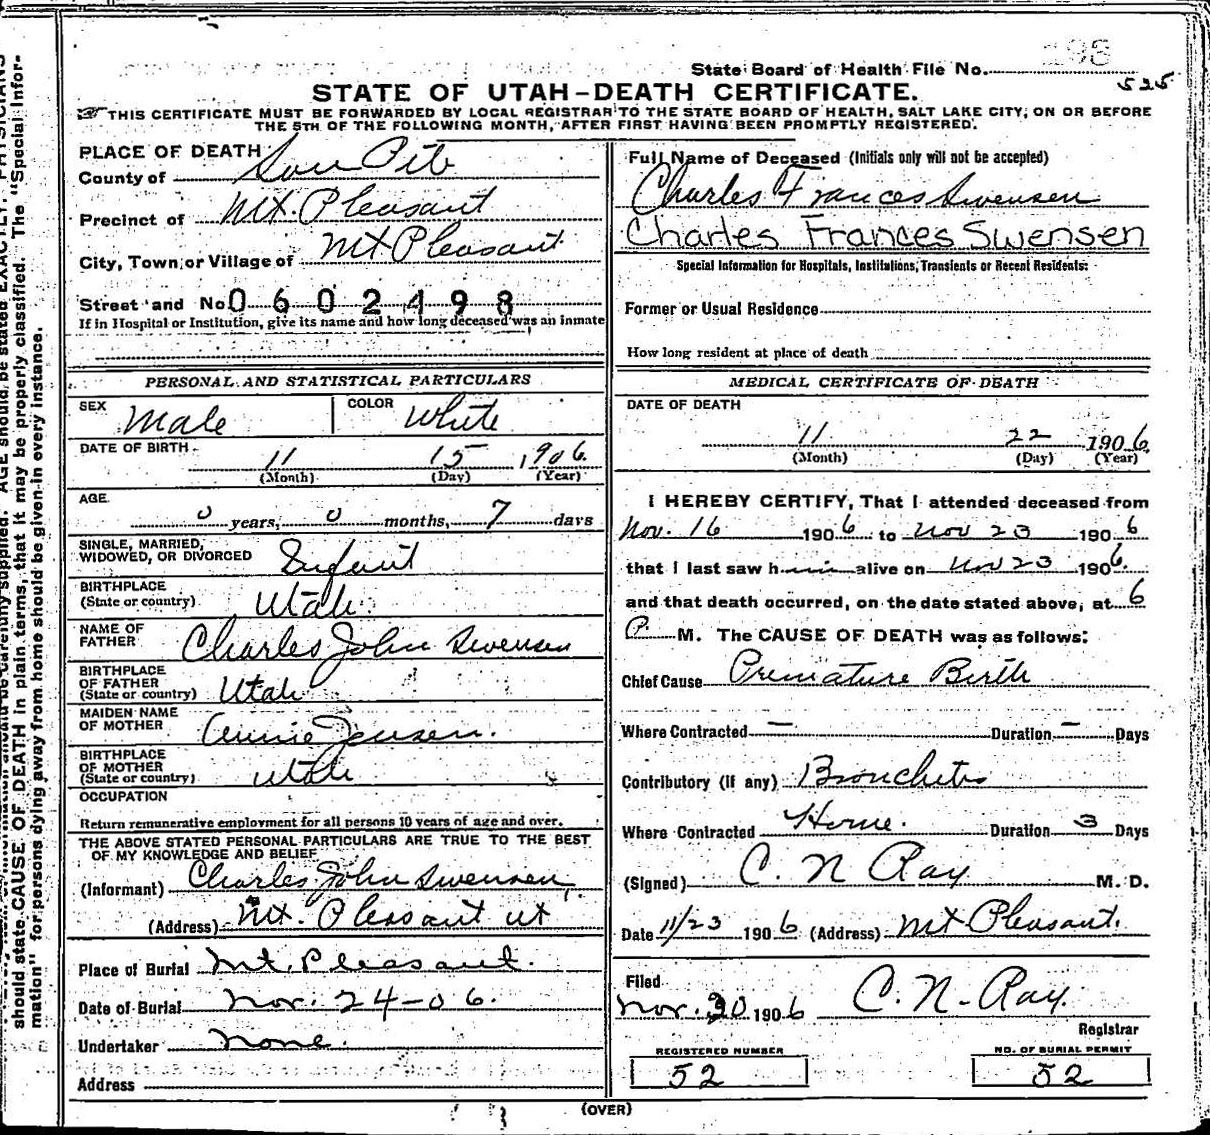 State Board of Health File No. 298
525
STATE OF UTAH—DEATH CERTIFICATE.
THIS CERTIFICATE MUST BE FORWARDED BY LOCAL REGISTRAR TO THE STATE BOARD OF HEALTH, SALT LAKE CITY, ON OR BEFORE
THE 5TH OF THE FOLLOWING MONTH, AFTER FIRST HAVING BEEN PROMPTLY REGISTERED.
PLACE OF DEATH
County of San Pete
Precinct of Mt. Pleasant
City, Town, or Village of Mt Pleasant
Street and No. 0602498
If in Hospital or Institution, give its name and how long deceased was an inmate
PERSONAL AND STATISTICAL PARTICULARS
SEX Male COLOR White
DATE OF BIRTH
11 15 1906
(Month) (Day) (Year)
AGE
0 years, 0 months, 7 days
SINGLE, MARRIED,
WIDOWED, OR DIVORCED Infant
BIRTHPLACE
(State or country) Utah
NAME OF
FATHER Charles John Swensen
BIRTHPLACE
OF FATHER
(State or country) Utah
MAIDEN NAME
OF MOTHER Annie Jensen.
BIRTHPLACE
OF MOTHER
(State or country) Utah
OCCUPATION
Return remunerative employment for all persons 10 years of age and over.
THE ABOVE STATED PERSONAL PARTICULARS ARE TRUE TO THE BEST
OF MY KNOWLEDGE AND BELIEF
(Informant) Charles John Swensen,
(Address) Mt. Pleasant Ut
Place of Burial Mt. Pleasant.
Date of Burial Nov. 24-06.
Undertaker None.
Address
Full Name of Deceased (Initials only will not be accepted)
Charles Frances Swensen
Charles Frances Swensen
Special Information for Hospitals, Institutions, Transients or Recent Residents:
Former or Usual Residence
How long resident at place of death
MEDICAL CERTIFICATE OF DEATH
DATE OF DEATH
11 22 1906
(Month) (Day) (Year)
I HEREBY CERTIFY, That I attended deceased from
Nov. 16 1906 to Nov 23 1906
that I last saw him alive on Nov 23 1906.
and that death occurred, on the date stated above, at 6
P. M. The CAUSE OF DEATH was as follows:
Chief Cause Premature Birth
Where Contracted — Duration — Days
Contributory (if any) Bronchitis
Where Contracted Home. Duration 3 Days
(Signed) C. N Ray M. D.
Date 11/23 1906 (Address) Mt Pleasant.
Filed
Nov. 30 1906 C. N. Ray.
Registrar
REGISTERED NUMBER
52
NO. OF BURIAL PERMIT
52
(OVER)
should state CAUSE OF DEATH in plain terms, that it may be properly classified. The "Special Infor-
mation" for persons dying away from home should be given in every instance.